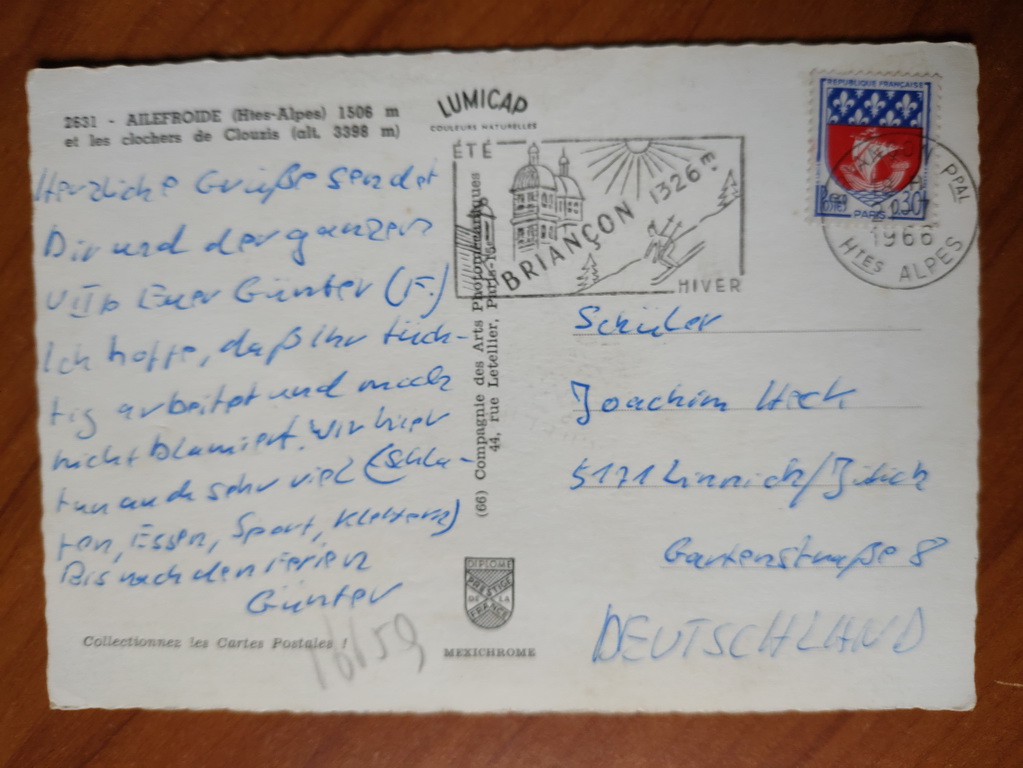 2631 - AILEFROIDE (Htes-Alpes) 1506 m
et les clochers de Clouzis (alt. 3398 m)
LUMICAP
COULEURS NATURELLES
Herzliche Grüße sendet
Dir und der ganzen
VIIb Euer Günter (F.)
Ich hoffe, daß Ihr tüch-
tig arbeitet und mich
nicht blamiert. Wir hier
tun auch sehr viel (Schla-
fen, Essen, Sport, Klettern)
Bis nach den Ferien
Günter
Collectionnez les Cartes Postales !
(66) Compagnie des Arts Photomécaniques
44, rue Letellier, Paris-15
DIPLOME
PRESTIGE
DE LA
FRANCE
MEXICHROME
ÉTÉ
BRIANÇON 1326 m
HIVER
REPUBLIQUE FRANÇAISE
PARIS
0.30
PPAL
1966
HTES ALPES
Schüler
Joachim Heck
5171 Linnich/Jülich
Gartenstraße 8
DEUTSCHLAND